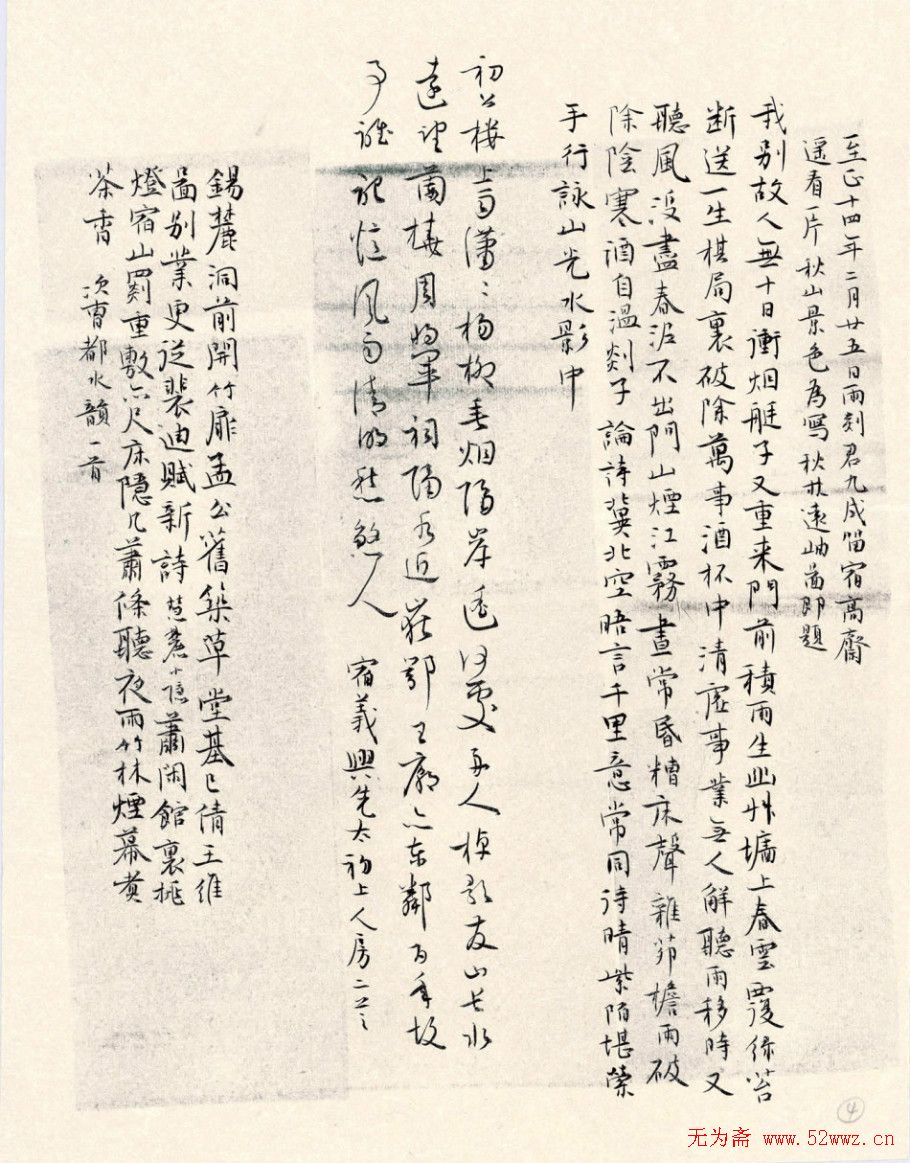 至正十四年二月廿五日雨刻君九成留宿高齋
遥看一片秋山景色為寫秋林遠岫圖即題
我别故人無十日衝烟艇子又重来門前積雨生幽艸墙上春雲覆綠苔
断送一生棋局裏破除萬事酒杯中清虛事業無人解聽雨移時又
聽風没盡春泥不出門山煙江霧晝常昏糟床聲雜茆檐雨破
除陰寒酒自温剡子論詩冀北空晤言千里意常同待晴紫陌堪縈
手行詠山光水影中
初公樓上雨瀟〻楊柳春烟隔岸遥 舟人棹歌友山長水
遠望蘭橈周將軍祠隔水近岳鄂王廟亦東鄰百年故
事誰能憶風雨清明愁煞人 宿義興先太初上人房二首
錫麓洞前開竹扉孟公舊築草堂基已倩王維
圖别業更从裴迪賦新詩慧麓小隱蕭閑館裏挑
燈宿山罽重敷六尺床隱几蕭條聽夜雨竹林煙幕煑
茶香 次曹都水韻一首
4
无为斋 www.52wwz.cn